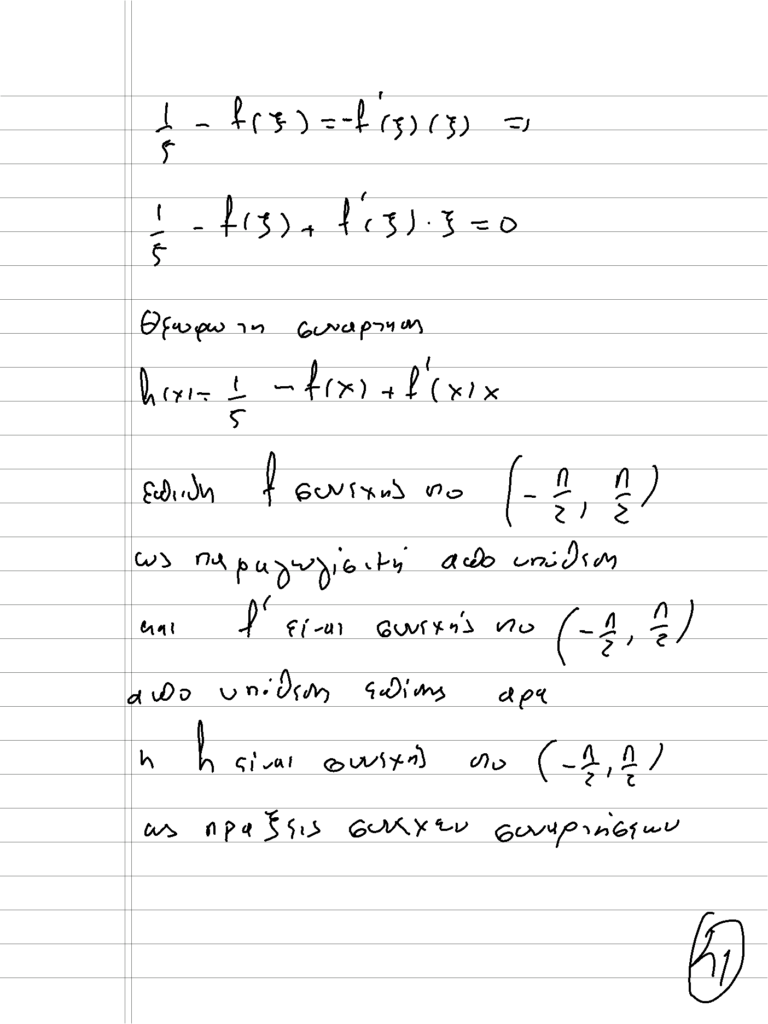 1/5 - f(ξ) = -f'(ξ)(ξ) ⇒
1/5 - f(ξ) + f'(ξ)·ξ = 0
Θεωρω τη συναρτηση
h(x) = 1/5 - f(x) + f'(x)x
επειδη f συνεχης στο (-π/2, π/2)
ως παραγωγίσιμη απο υπόθεση
και f' είναι συνεχής στο (-π/2, π/2)
απο υπόθεση επίσης αρα
η h είναι συνεχής στο (-π/2, π/2)
ως πραξεις συνεχων συναρτήσεων